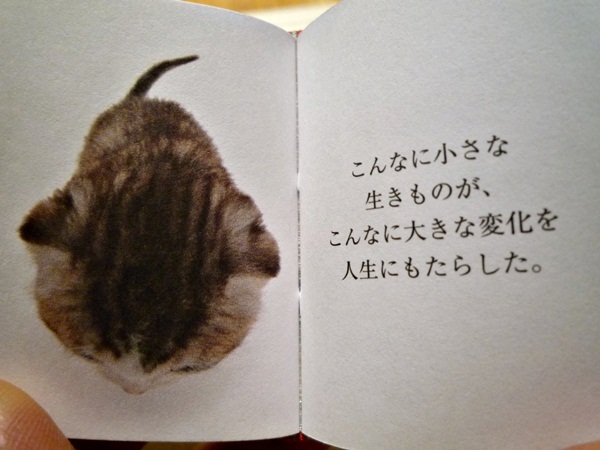 こんなに小さな
生きものが、
こんなに大きな変化を
人生にもたらした。